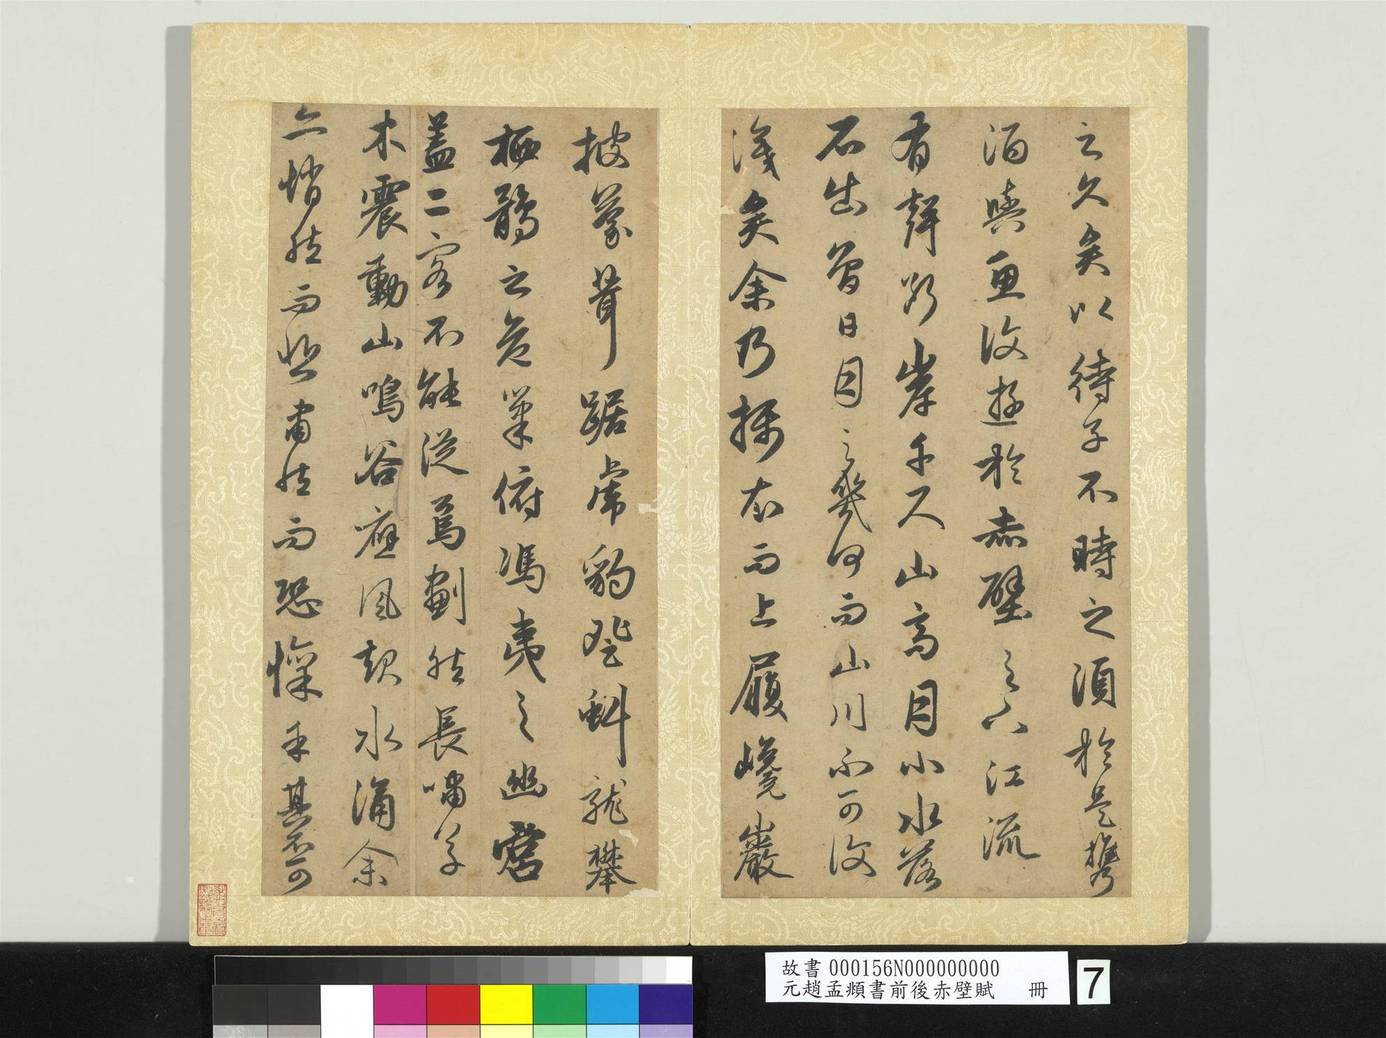 之久矣以待子不時之須於是攜
酒與魚復遊於赤壁之下江流
有聲斷岸千尺山高月小水落
石出曾日月之幾何而山川不可復
識矣余乃攝衣而上履巉巖
披蒙茸踞虎豹登虯龍攀
栖鶻之危巢俯馮夷之幽宮
蓋二客不能從焉劃然長嘯草
木震動山鳴谷應風起水涌余
亦悄然而悲肅然而恐懍乎其不可
故書 000156N000000000
元趙孟頫書前後赤壁賦 冊
7